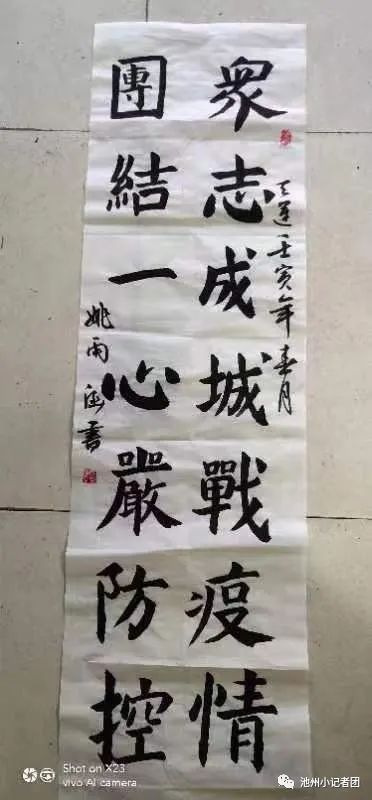 衆志成城戰疫情
天運壬寅年春月
團結一心嚴防控
姚雨涵書
Shot on X23
vivo AI camera
池州小记者团